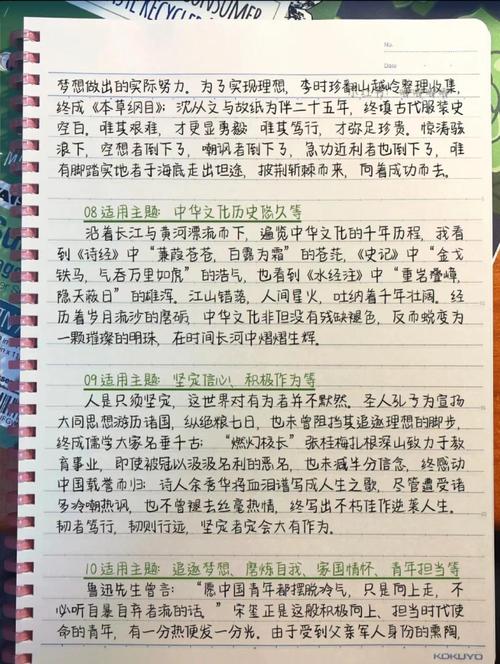 CONSUMER
RECYCLE
No.
Date
梦想做出的实际努力。为了实现理想，李时珍翻山越岭整理收集，
终成《本草纲目》；沈从文与故纸为伴二十五年，终填古代服装史
空白。唯其艰难，才更显勇毅 唯其笃行，才弥足珍贵。惊涛骇
浪下，空想者倒下了，嘲讽者倒下了，急功近利者也倒下了，唯
有脚踏实地者于海底走出坦途，披荆斩棘而来，向着成功而去。
08 适用主题：中华文化历史悠久等
沿着长江与黄河漂流而下，遍览中华文化的千年历程，我看
到《诗经》中“蒹葭苍苍，白露为霜”的苍茫，《史记》中“金戈
铁马，气吞万里如虎”的浩气，也看到《水经注》中“重岩叠嶂，
隐天蔽日”的雄浑。江山错落，人间星火，吐纳着千年壮阔。经
历着岁月流沙的磨砺，中华文化非但没有残缺褪色，反而蜕变为
一颗璀璨的明珠，在时间长河中熠熠生辉。
09 适用主题：坚定信心、积极作为等
人是只须坚定，这世界对有为者并不默然。圣人孔子为宣扬
大同思想游历诸国，纵绝粮七日，也未曾阻挡其追逐理想的脚步，
终成儒学大家名垂千古；“燃灯校长”张桂梅扎根深山致力于教
育事业，即使被冠以汲汲名利的恶名，也未减半分信念，终感动
中国载誉而归；诗人余秀华将血泪谱写成人生之歌，尽管遭受诸
多冷嘲热讽，也不曾褪去丝毫热情，终写出不朽佳作逆袭人生。
韧者笃行，韧则行远，坚定者定会大有作为。
10 适用主题：追逐梦想、磨炼自我、家国情怀、青年担当等
鲁迅先生曾言：“愿中国青年都摆脱冷气，只是向上走，不
必听自暴自弃者流的话。”宋玺正是这股积极向上、担当时代使
命的青年，有一分热便发一分光。由于受到父亲军人身份的熏陶，
KOKUYO